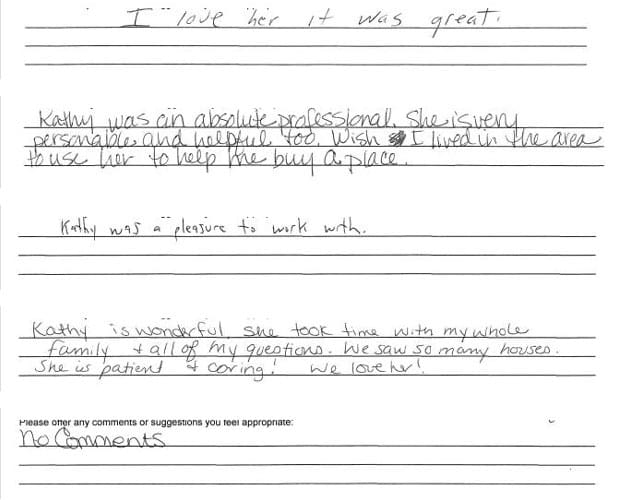 I love her it was great.
Kathy was an absolute professional. She is very
personable and helpful too. Wish I lived in the area
to use her to help me buy a place.
Kathy was a pleasure to work with.
Kathy is wonderful. She took time with my whole
family & all of my questions. We saw so many houses.
She is patient & caring! We love her!
Please offer any comments or suggestions you feel appropriate:
No Comments